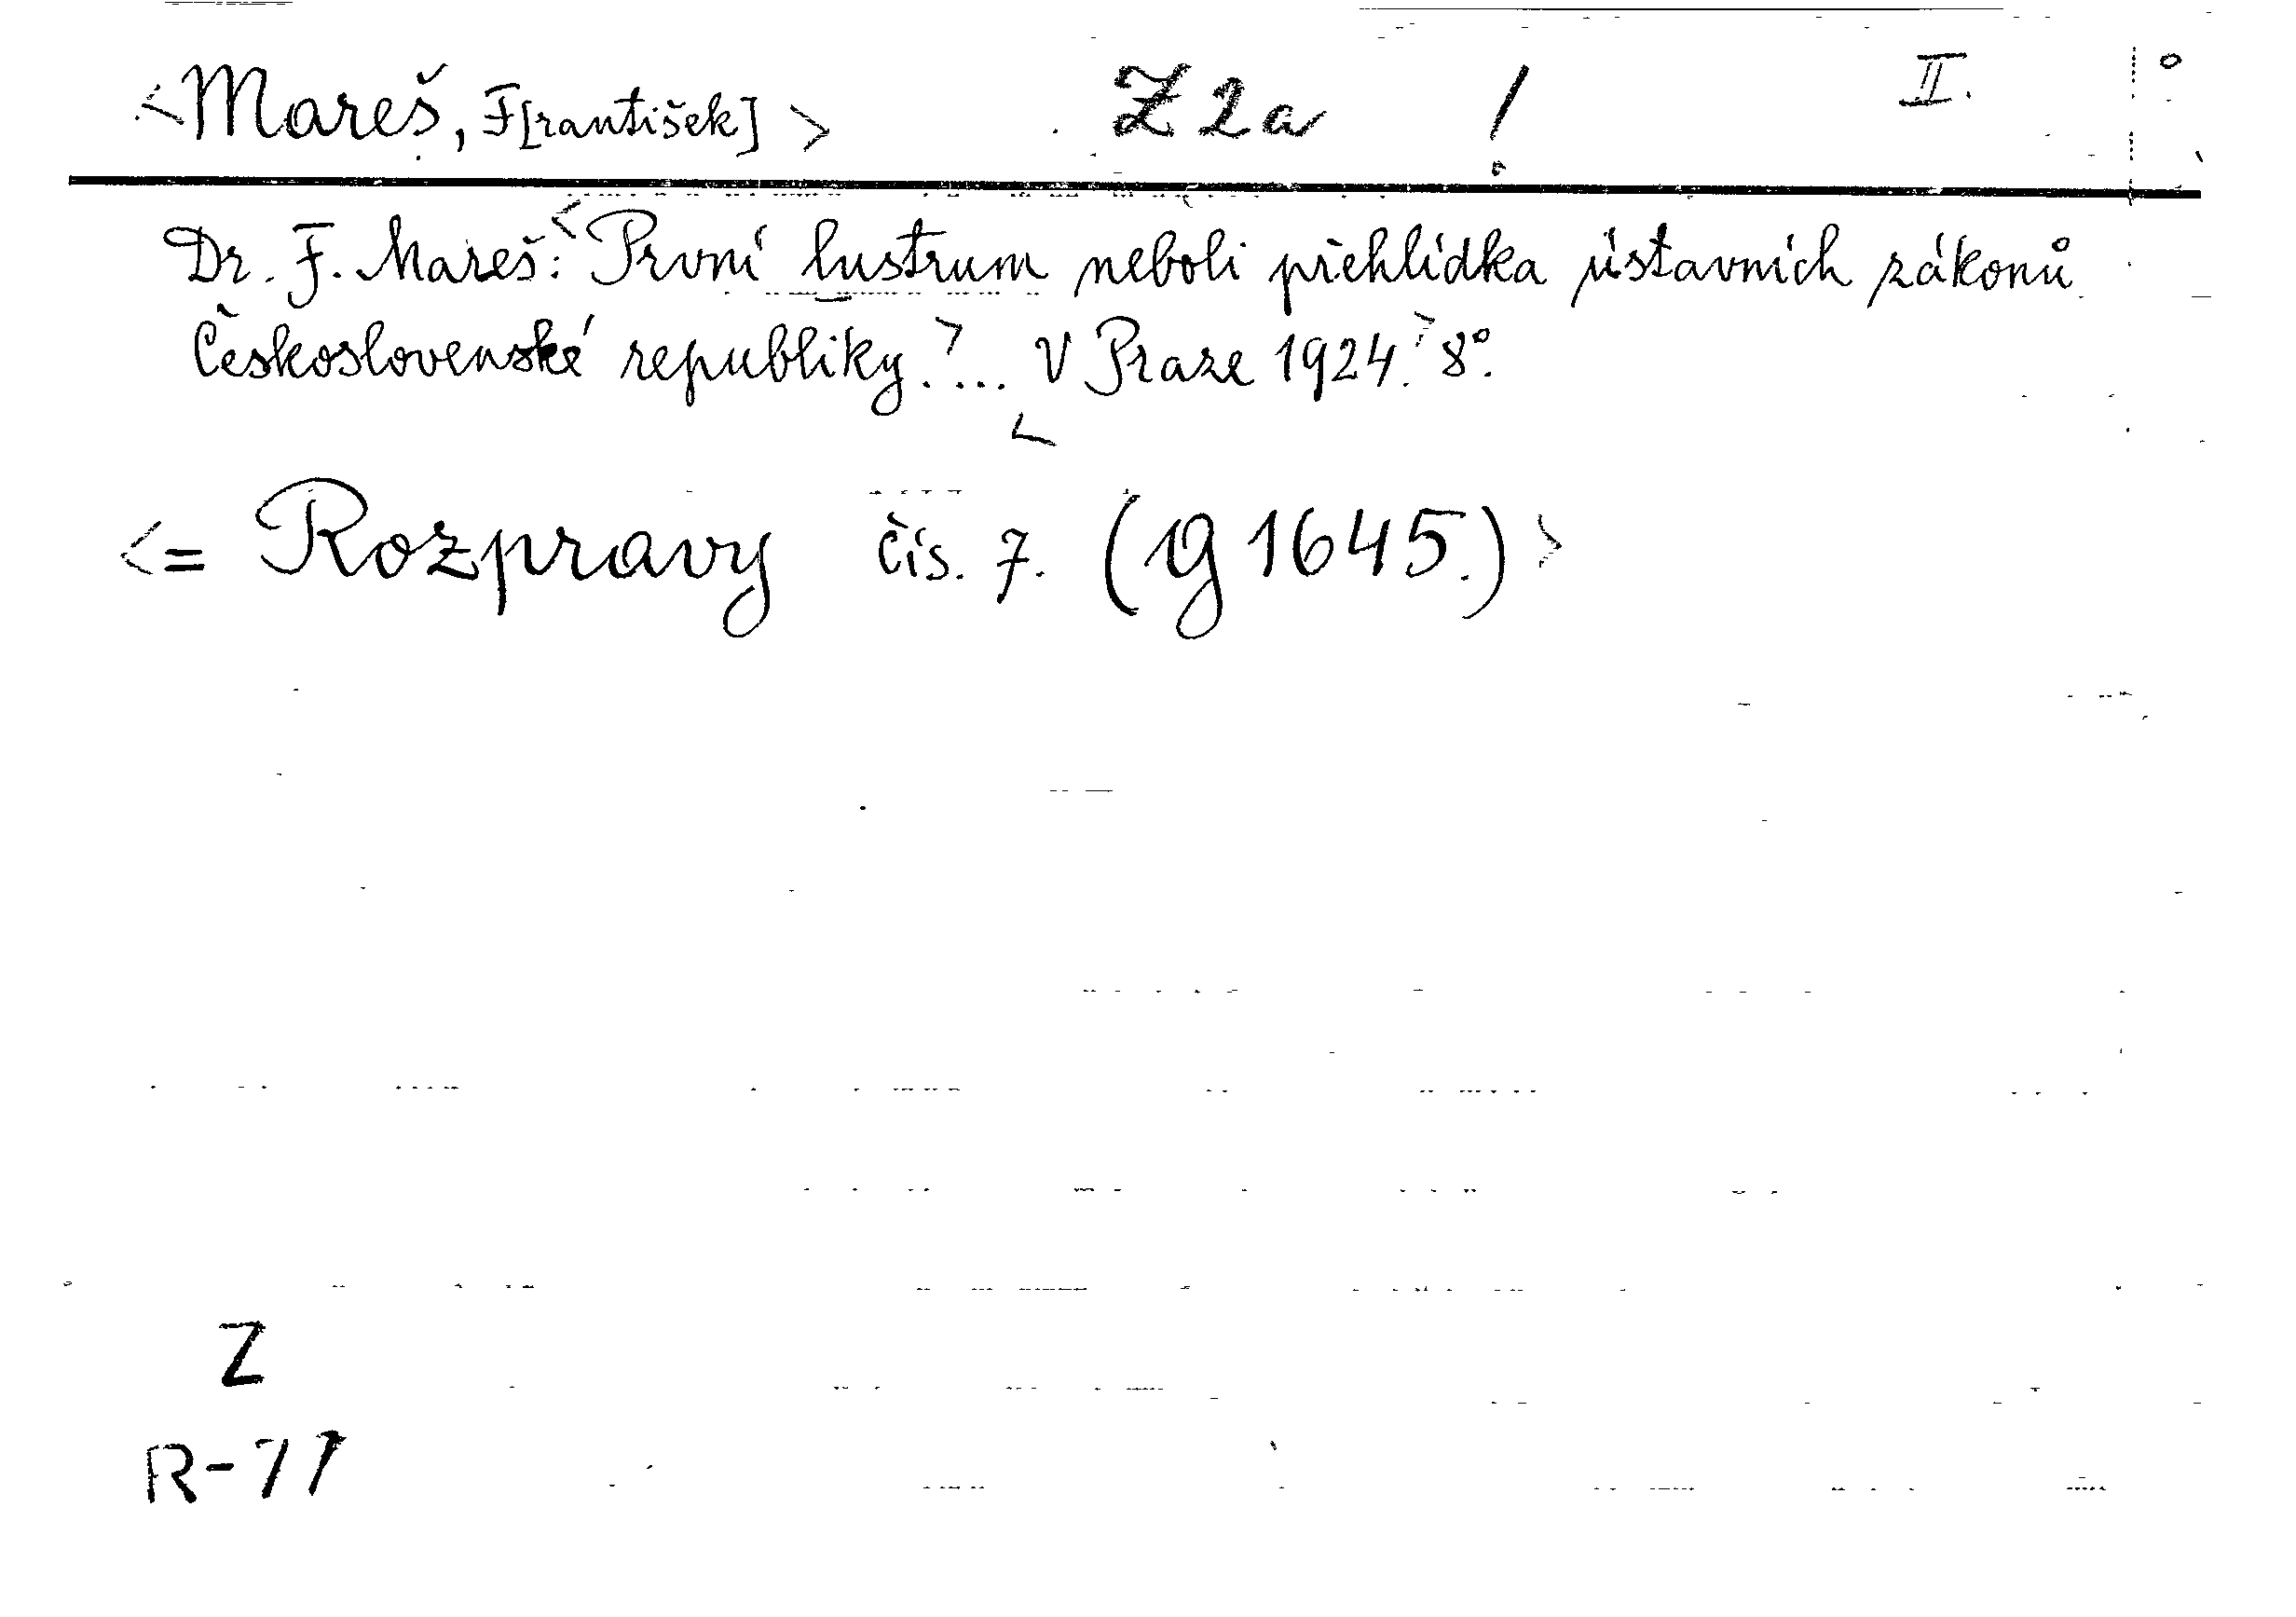 <Mareš, F[rantišek]> Z 2a ! II.
Dr. F. Mareš: <První lustrum neboli přehlídka ústavních zákonů
Československé republiky.>... V Praze 1924.> 8°.
<
<= Rozpravy čís. 7. (g 1645.)>
Z
R-77